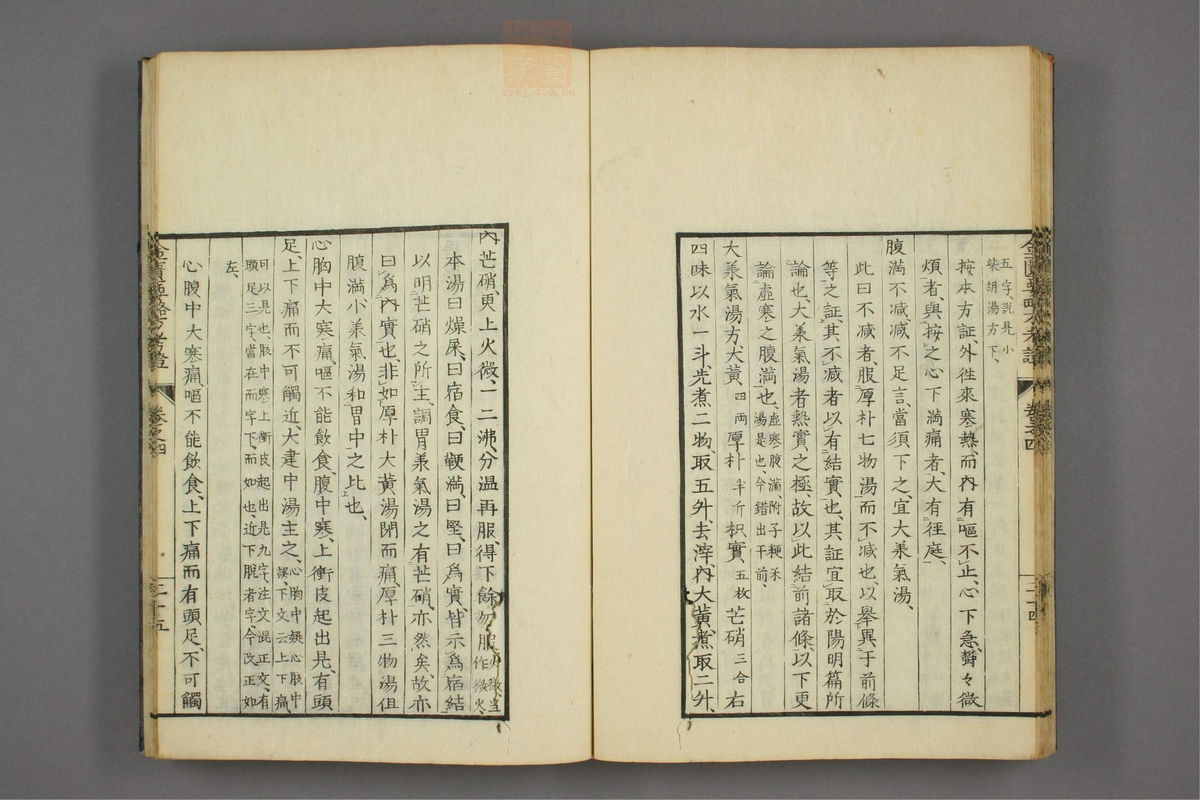 五字、說見小
柴胡湯方下、
按本方証、外徃來寒熱、而內有嘔不止、心下急、欝々微
煩者、與按之心下滿痛者、大有徑庭、
腹滿不减、减不足言、當須下之、宜大秉氣湯、
此曰不减者、服厚朴七物湯而不减也、以舉異于前條
等之証、其不减者以有結實也、其証宜取於陽明篇所
論也、大秉氣湯者熱實之極、故以此結前諸條、以下更
論虛寒之腹滿也、虛寒腹滿、附子粳米
湯是也、今錯出于前、
大秉氣湯方、大黃、四兩厚朴半斤枳實、五枚芒硝三合右
四味以水一斗、先煮二物、取五升、去滓、內大黃煮取二升、
金匱要略方考證
卷之四
三十四
內芒硝、更上火微、一二沸、分温再服、得下餘勿服
作微火、
本湯曰燥屎、曰宿食、曰鞕滿、曰堅、曰爲實、皆示爲宿結
以明芒硝之所主、調胃秉氣湯之有芒硝、亦然矣、故亦
曰爲內實也、非如厚朴大黃湯閉而痛、厚朴三物湯但
腹滿小秉氣湯和胃中之比也、
心胸中大寒痛、嘔不能飲食、腹中寒、上衝皮起出見、有頭
足、上下痛而不可觸近、大建中湯主之、心胸中娛心腹中
誤、下文云上下痛、
可以見也、腹中寒上衝皮起出見九字、注文混正文、有
頭足三字、當在而字下、而如也、近下脫者字、今改正如
左、
心腹中大寒痛、嘔不能飲食、上下痛而有頭足、不可觸
金匱要略方考證
卷之四
三十五